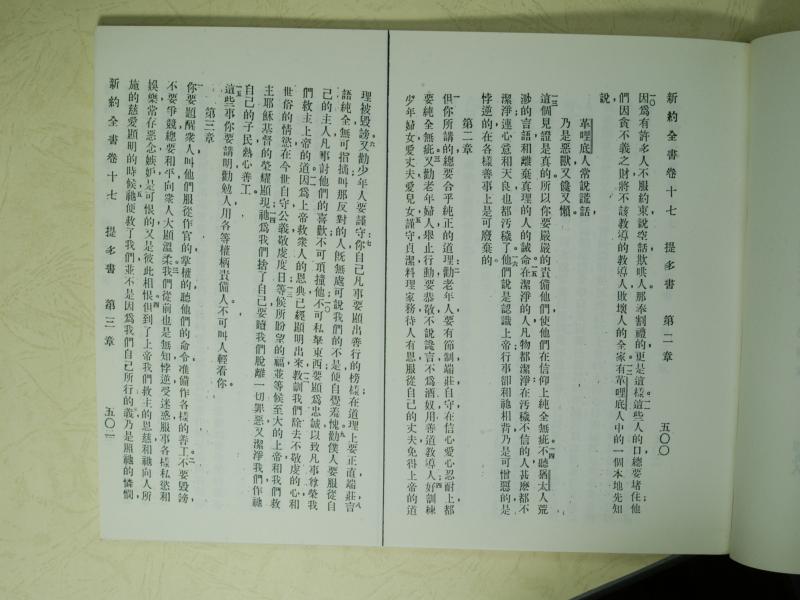 新約全書卷十七 提多書 第二章 五〇〇
因爲有許多人不服約束說空話欺哄人那奉割禮的更是這樣這些人的口總要堵住他
們因貪不義之財將不該教導的教導人敗壞人的全家有革哩底人中的一個本地先知
說
革哩底人常說謊話
乃是惡獸又饞又懶
這個見證是真的所以你要嚴嚴的責備他們使他們在信仰上純全無疵不聽猶太人荒
渺的言語和離棄真理的人的誡命在潔淨的人凡物都潔淨在汚穢不信的人甚麽都不
潔淨連心意和天良也都汚穢了他們說是認識上帝行事卻和祂相背乃是可憎惡的是
悖逆的在各樣善事上是可廢棄的
第二章
但你所講的總要合乎純正的道理勸老年人要有節制端莊自守在信心愛心忍耐上都
要純全無疵又勸老年婦人舉止行動要恭敬不說讒言不爲酒奴用善道教導人好訓練
少年婦女愛丈夫愛兒女謹守貞潔料理家務待人有恩服從自己的丈夫免得上帝的道
理被毀謗又勸少年人要謹守你自己凡事要顯出善行的榜樣在道理上要正直端莊言
語純全無可指摘叫那反對的人旣無處可說我們的不是便自覺羞愧勸僕人要服從自
己的主人凡事討他們的喜歡不可頂撞他不可私拏東西要顯爲忠誠以致凡事尊榮我
們救主上帝的道因爲上帝救衆人的恩典已經顯明出來教訓我們除去不敬虔的心和
世俗的情慾在今世自守公義敬虔度日等候所盼望的福並等候至大的上帝和我們救
主耶穌基督的榮耀顯現祂爲我們捨了自己要贖我們脫離一切罪惡又潔淨我們作祂
自己的子民熱心善工
這些事你要講明勸勉人用各等權柄責備人不可叫人輕看你
第三章
你要題醒衆人叫他們服從作官的掌權的聽他們的命令准備作各樣的善工不要毀謗
不要爭競總要和平向衆人大顯溫柔我們從前也是無知悖逆受迷惑服事各樣私慾和
娛樂常存惡念嫉妒是可恨的又是彼此相恨但到了上帝我們救主的恩慈和祂向人所
施的慈愛顯明的時候祂便救了我們並不是因爲我們自己所行的義乃是照祂的憐憫
新約全書卷十七 提多書 第三章 五〇一